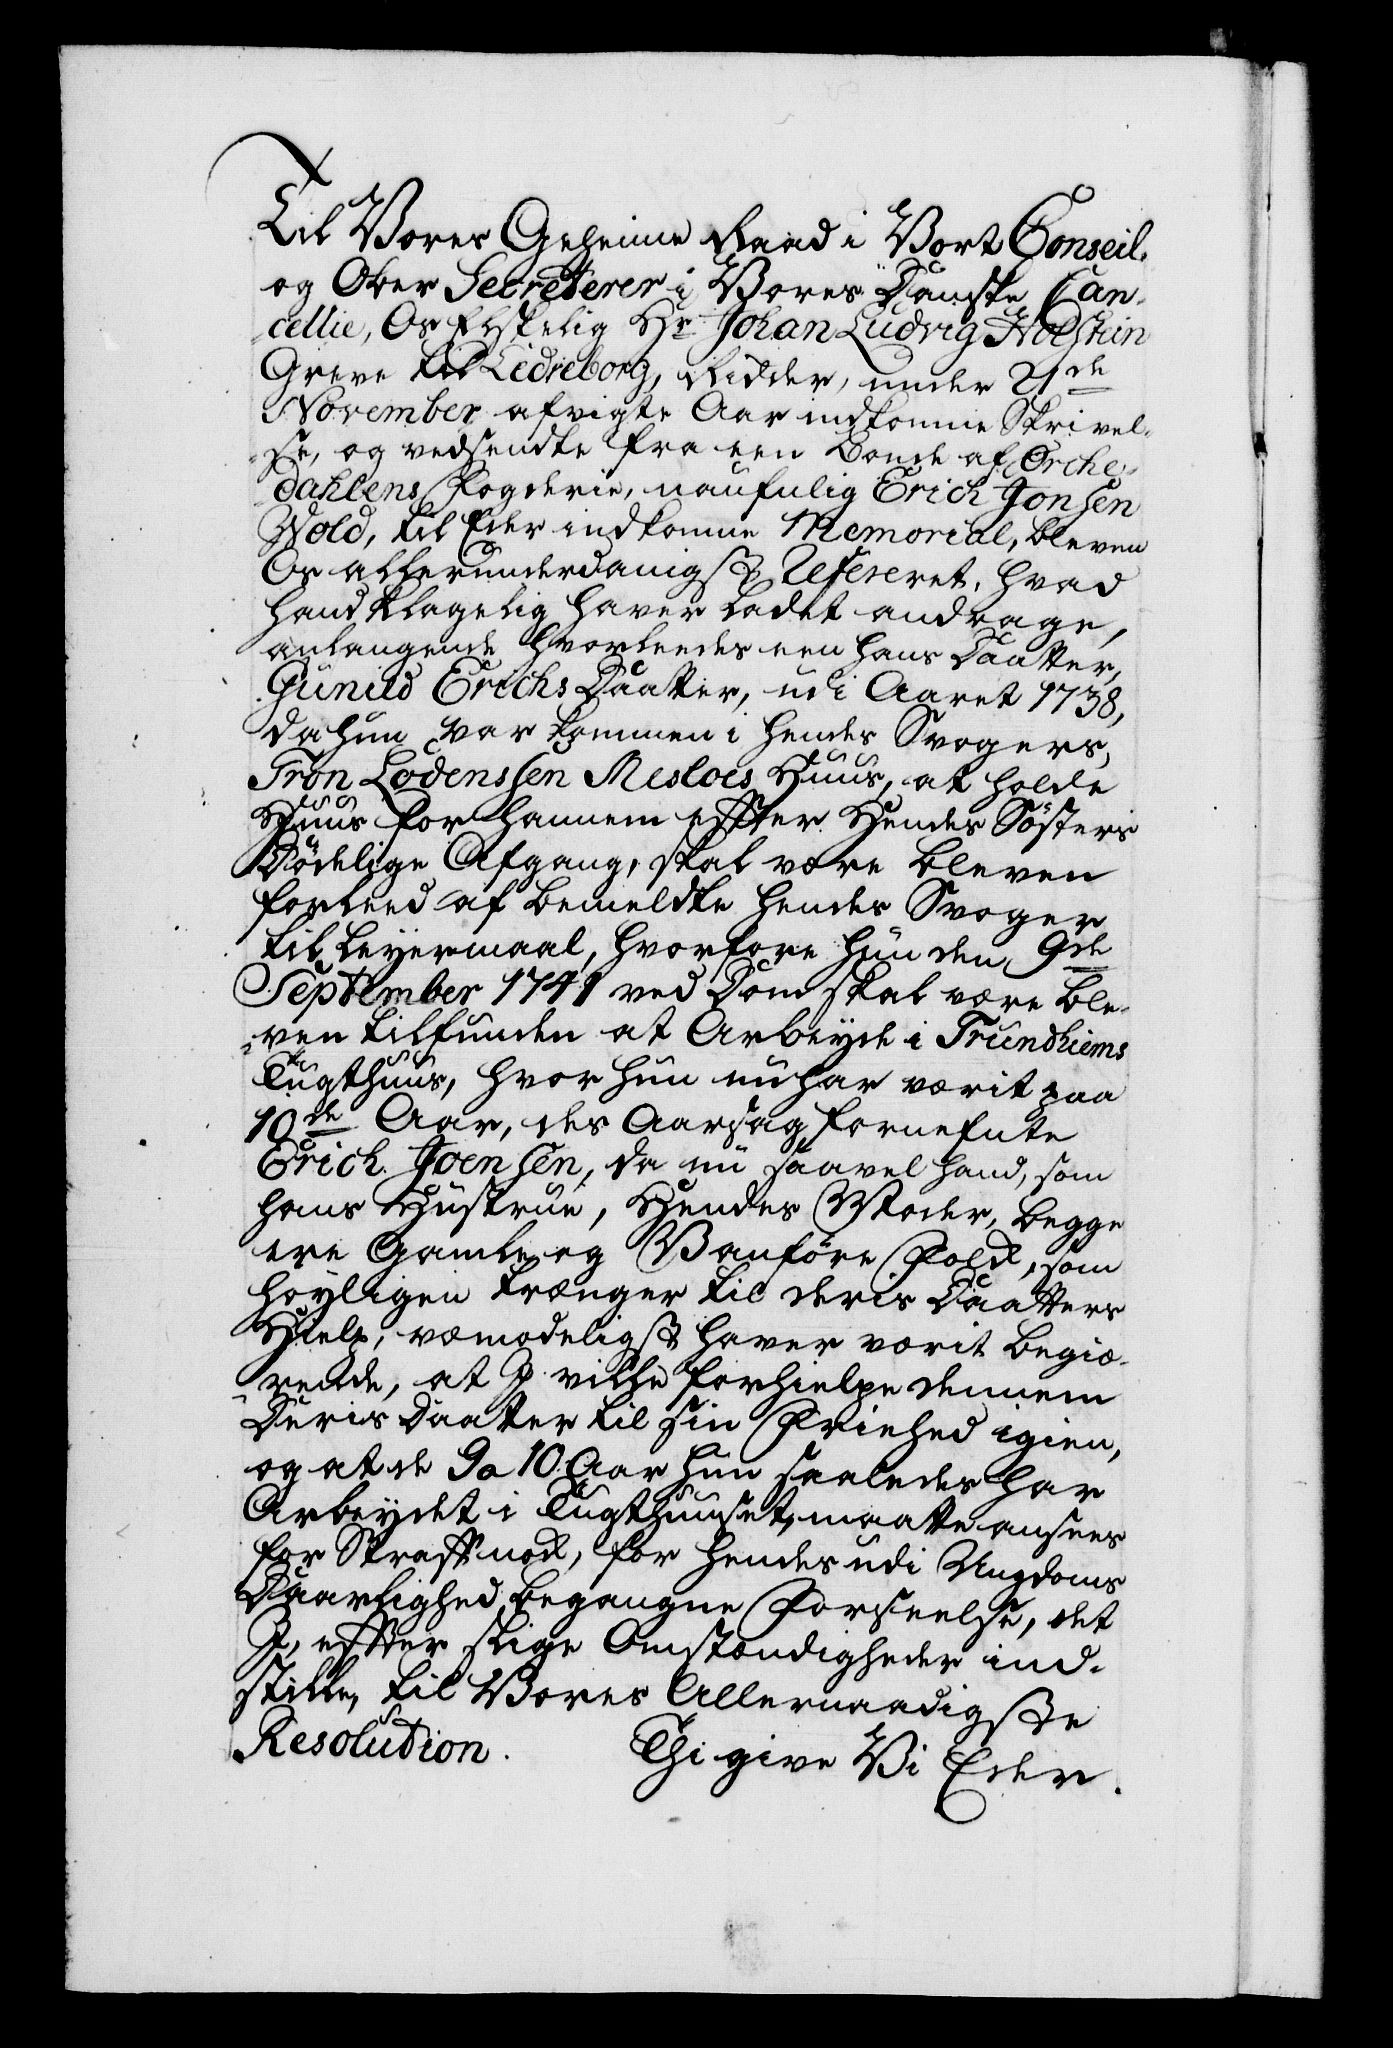 Til Vores Geheime Raad i Vort Conseil.
og Ober Secreterer i Vores Danske Can-
cellie, Os Elskelig Hr. Johan Ludvig Holstein
Greve til Ledreborg, Ridder, under 21de
November afvigte Aar indkomne Skrivel-
se, og vedsendte fra een Bonde af Orche-
dahlens Fogderie, naufnlig Erich Jonsen
Wold, til Eder indkomne Memorial, bleven
Os allerunderdanigst Refereret, hvad
hand klagelig haver ladet andrage,
anlangende hvorleedes een hans Daatter,
Gunild Erichs Daatter, udi Aaret 1738,
da hun var kommen i hendes Svogers,
Tron Lodenssen Mesloes Huus, at holde
Huus for hannem effter Hendes Sösters
Dödelige Afgang, skal være bleven
forleed af bemeldte hendes Svoger
til Leyermaal, hvorfore hun den 9de
September 1741 ved Dom skal være ble-
ven tilfunden at Arbeyde i Trundhiems
Tugthuus, hvor hun nu har værit paa
10de Aar, des Aarsag fornefnte
Erich Joensen, da nu saavel hand, som
hans Hustrue, Hendes Moder, begge
ere Gamle og Vanföre Folk, som
hoyligen trænger til deris Daatters
Hielp, væmodeligst haver værit begiæ-
rende, at I ville forhielpe dennem
Deris Daatter til sin Friehed igien,
og at de 9 a 10 Aar hun saaledes har
Arbeydet i Tugthuuset, maatte ansees
for Straff nok, for hendes udi Ungdoms
Daarlighed begangne Forseelse, det
I, effter slige Omstændigheder ind-
stille, til Vores Allernaadigste
Resolution. Thi give Vi Eder.